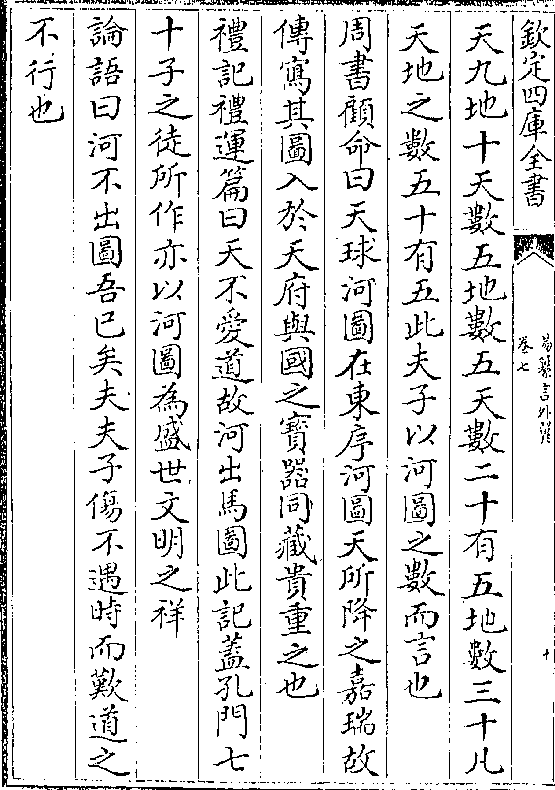 欽定四庫全書
易纂言外翼
卷七
十
天九地十天數五地數五天數二十有五地數三十凡
天地之數五十有五此夫子以河圖之數而言也
周書顧命曰天球河圖在東序河圖天所降之嘉瑞故
傳寫其圖入於天府與國之寳器同藏貴重之也
禮記禮運篇曰天不愛道故河出馬圖此記蓋孔門七
十子之徒所作亦以河圖為盛世文明之祥
論語曰河不出圖吾已矣夫夫子傷不遇時而歎道之
不行也